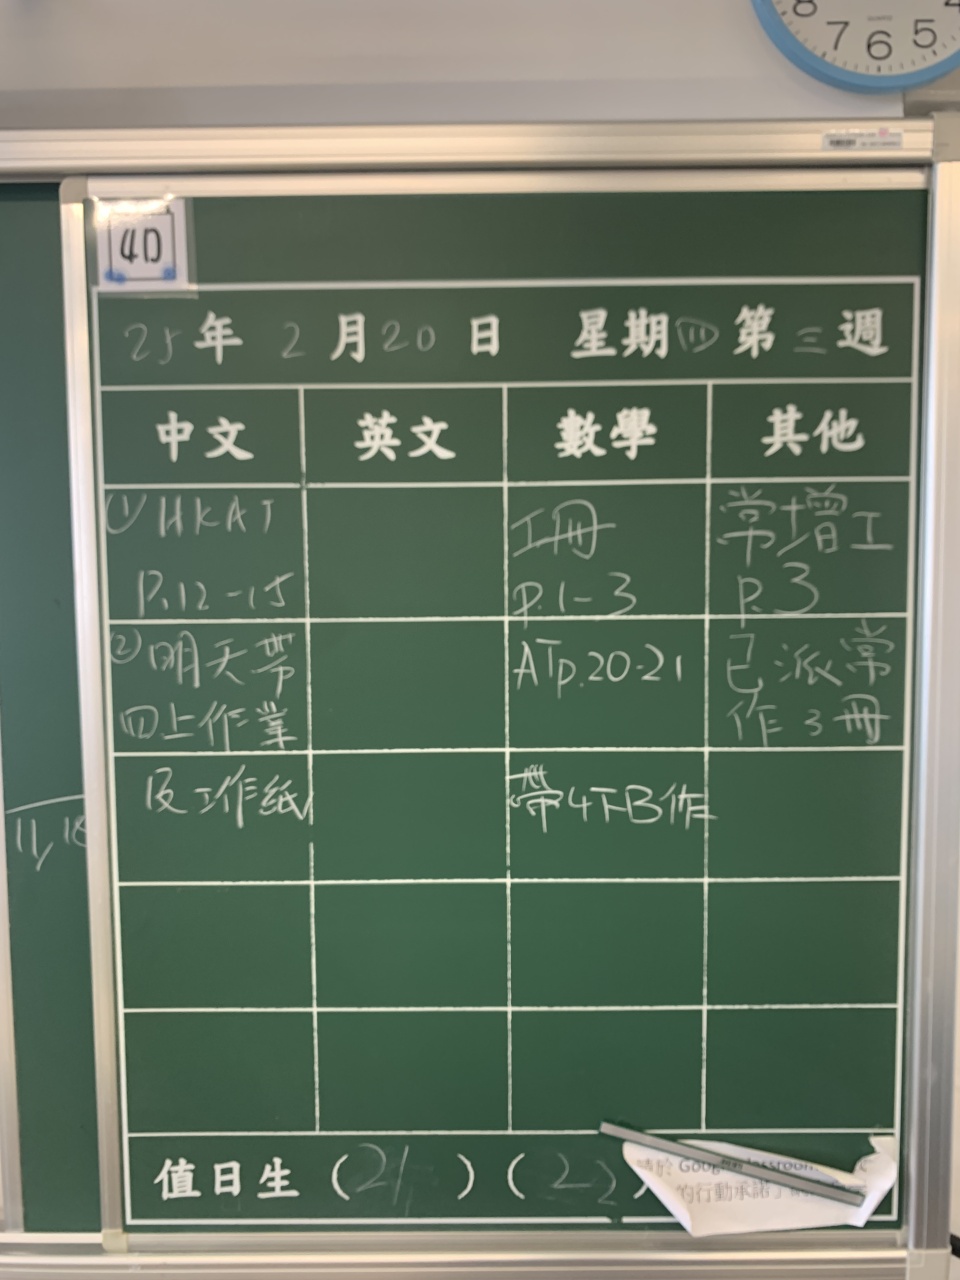 8 7 6 5 4
4D
25年 2月20日 星期四 第三週
中文 英文 數學 其他
① HKAT
P.12-15
② 明天帶
四上作業
及工作紙
工冊
P.1-3
ATp.20-21
帶4下B作
常增工
P.3
已派常
作3冊
11, 18
值日生 (21) (22)
請於 Google Classroom
的行動承諾」